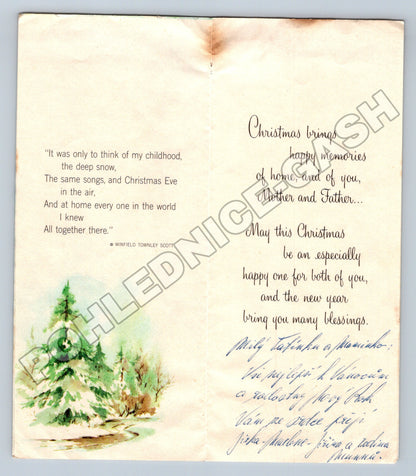 "It was only to think of my childhood,
the deep snow,
The same songs, and Christmas Eve
in the air,
And at home every one in the world
I knew
All together there."
WINFIELD TOWNLEY SCOTT
Christmas brings
happy memories
of home, and of you,
Mother and Father...
May this Christmas
be an especially
happy one for both of you,
and the new year
bring you many blessings.
Milý Tatínku a Maminko:
Vše nejlepší k Vánocům
a radostný Nový Rok
Vám ze srdce přejí
Jirka - - Jiřina a rodina
POHLEDNICE.CASH